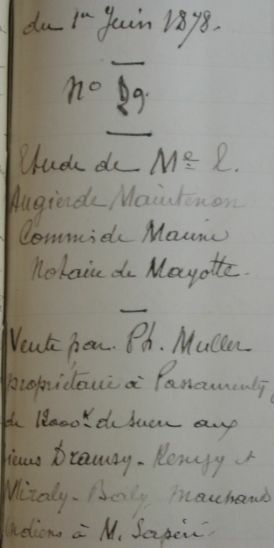 du 1er Juin 1878.
No 29.
Etude de Me L.
Augier de Maintenon
Commis de Marine
Notaire de Mayotte.
Vente par Ph. Muller
propriétaire à Passamenty
de 12000k de sucre aux
sieurs Dramsy - Remzy et
Miraly - Boily, marchands
Indiens à M. Sapéré